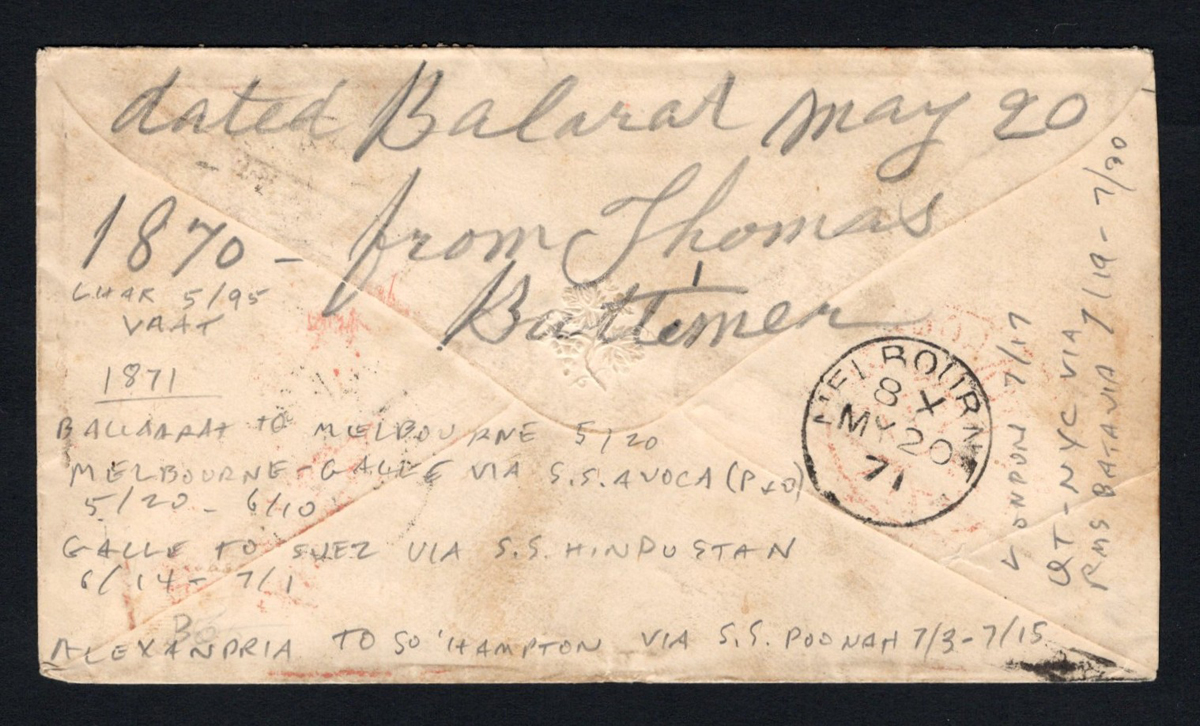 dated Balarat May 20
1870 - from Thomas
Battimer
LHAR 5/95
VAAT
1871
BALLARAT TO MELBOURNE 5/20
MELBOURNE - GALLE VIA S.S. AVOCA (P+O)
5/20 - 6/10
GALLE TO SUEZ VIA S.S. HINDUSTAN
6/14 - 7/1
ALEXANDRIA TO SO'HAMPTON VIA S.S. POONAH 7/3-7/15
MELBOURNE
8 X
MY 20
71
LONDON 7/17
QT - NYC VIA
RMS BATAVIA 7/19 - 7/30